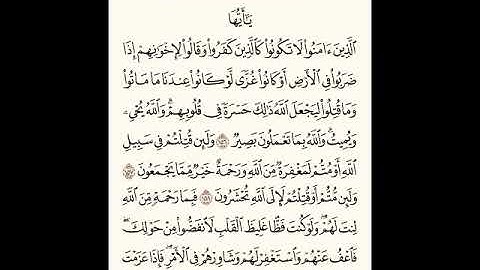 يَٰٓأَيُّهَا
ٱلَّذِينَ ءَامَنُوا۟ لَا تَكُونُوا۟ كَٱلَّذِينَ كَفَرُوا۟ وَقَالُوا۟ لِإِخْوَٰنِهِمْ إِذَا
ضَرَبُوا۟ فِى ٱلْأَرْضِ أَوْ كَانُوا۟ غُزًّى لَّوْ كَانُوا۟ عِندَنَا مَا مَاتُوا۟
وَمَا قُتِلُوا۟ لِيَجْعَلَ ٱللَّهُ ذَٰلِكَ حَسْرَةً فِى قُلُوبِهِمْ ۗ وَٱللَّهُ يُحْىِۦ
وَيُمِيتُ ۗ وَٱللَّهُ بِمَا تَعْمَلُونَ بَصِيرٌ ١٥٦ وَلَئِن قُتِلْتُمْ فِى سَبِيلِ
ٱللَّهِ أَوْ مُتُّمْ لَمَغْفِرَةٌ مِّنَ ٱللَّهِ وَرَحْمَةٌ خَيْرٌ مِّمَّا يَجْمَعُونَ ١٥٧
وَلَئِن مُّتُّمْ أَوْ قُتِلْتُمْ لَإِلَى ٱللَّهِ تُحْشَرُونَ ١٥٨ فَبِمَا رَحْمَةٍ مِّنَ ٱللَّهِ
لِنتَ لَهُمْ ۖ وَلَوْ كُنتَ فَظًّا غَلِيظَ ٱلْقَلْبِ لَٱنفَضُّوا۟ مِنْ حَوْلِكَ ۖ
فَٱعْفُ عَنْهُمْ وَٱسْتَغْفِرْ لَهُمْ وَشَاوِرْهُمْ فِى ٱلْأَمْرِ ۖ فَإِذَا عَزَمْتَ